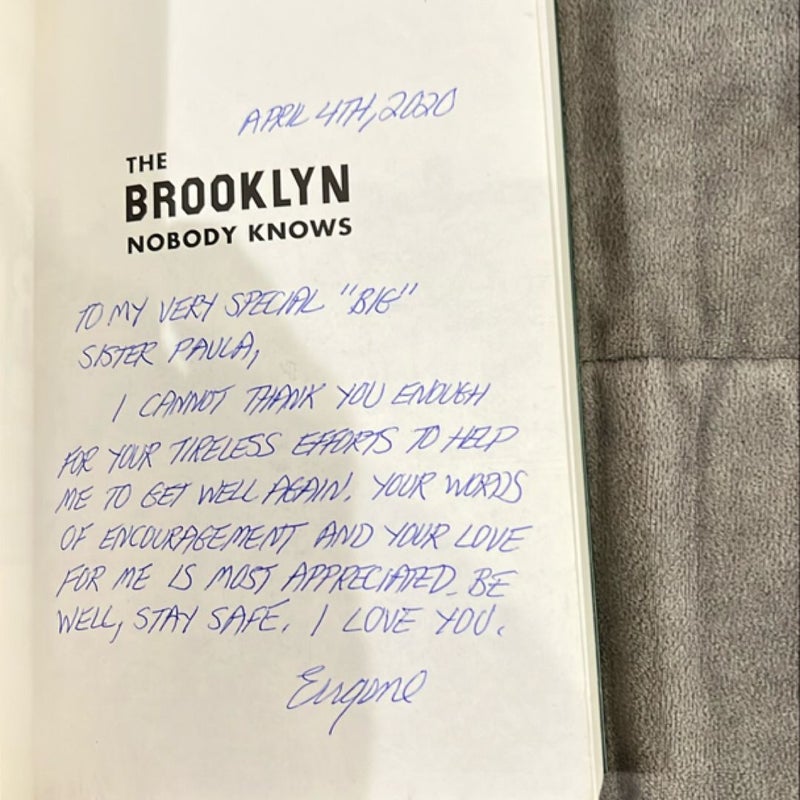 APRIL 4TH, 2020
THE
BROOKLYN
NOBODY KNOWS
TO MY VERY SPECIAL "BIG"
SISTER PAULA,
I CANNOT THANK YOU ENOUGH
FOR YOUR TIRELESS EFFORTS TO HELP
ME TO GET WELL AGAIN! YOUR WORDS
OF ENCOURAGEMENT AND YOUR LOVE
FOR ME IS MOST APPRECIATED. BE
WELL, STAY SAFE. I LOVE YOU.
Eugene